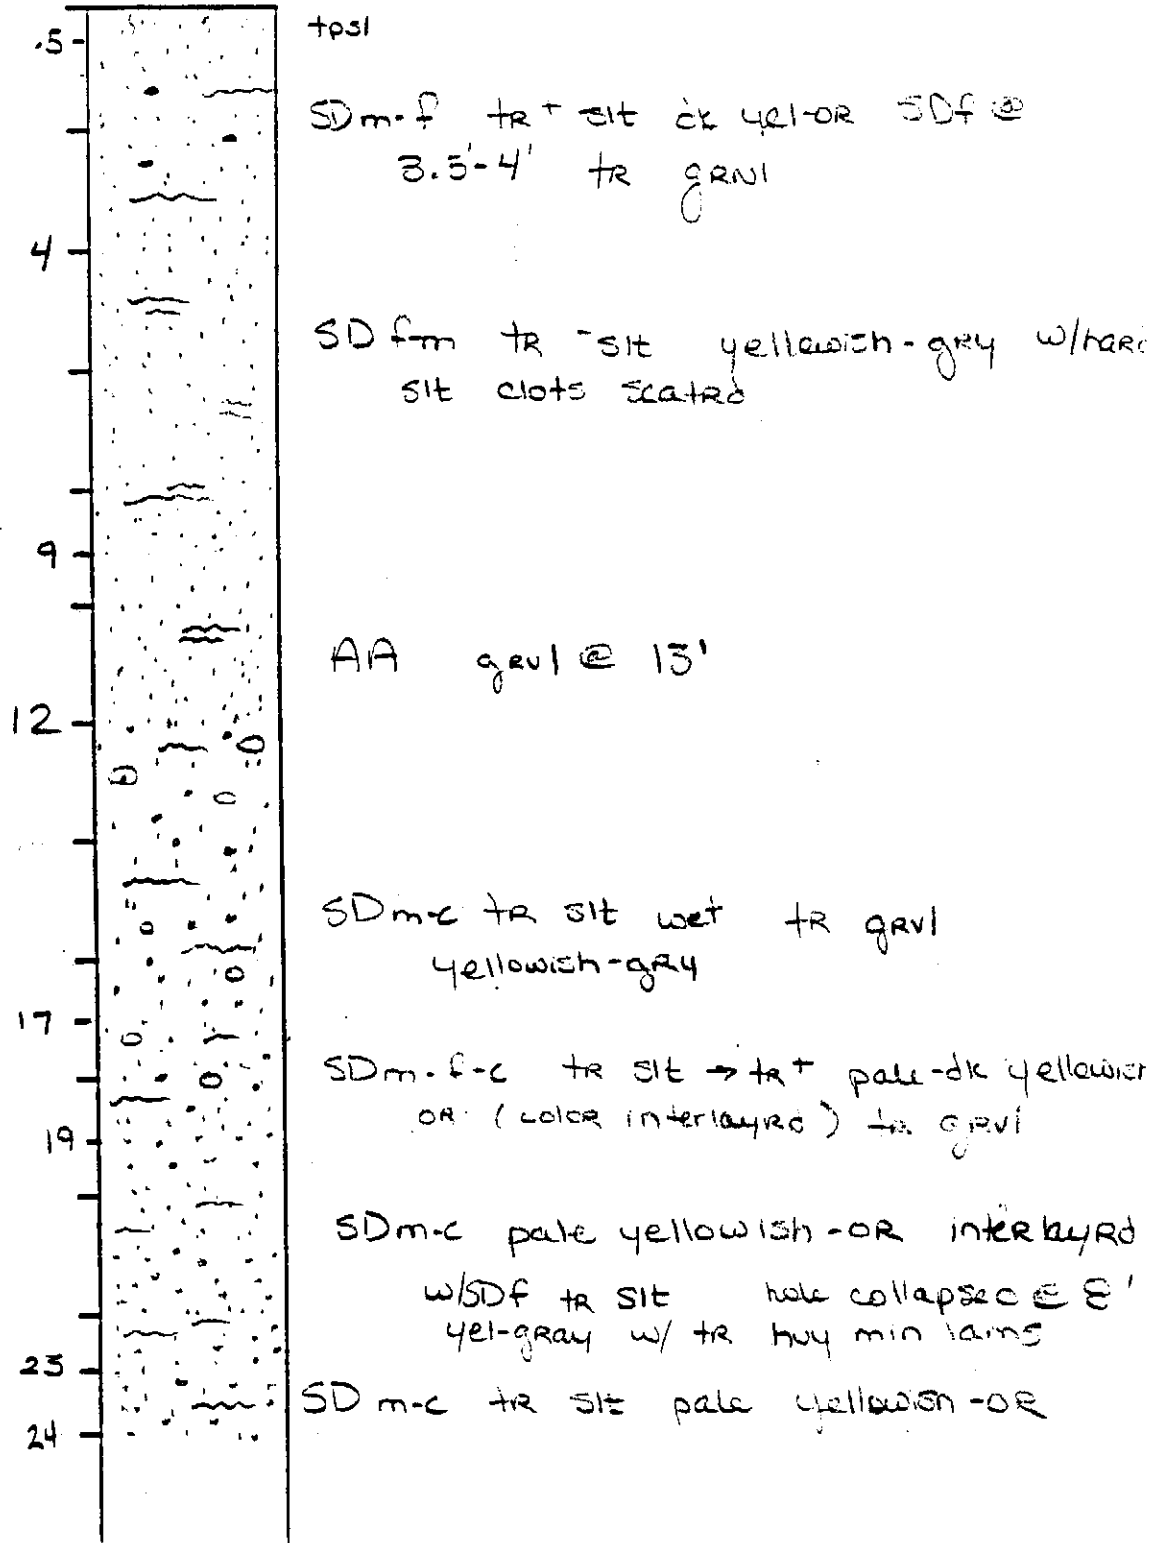 .5 tpsl
SDm-f tr+ slt dk yel-OR SDf @
3.5'-4' tr grnl
4
SD f-m tr -slt yellowish-gry w/hard
slt clots scatrd
9
AA grvl @ 13'
12
SDm-c tr slt wet tr grvl
yellowish-gry
17
SDm-f-c tr slt → tr+ pale-dk yellowish
OR (color interlayrd) tr grvl
19
SDm-c pale yellowish-OR interlayrd
w/SDf tr slt hole collapsed @ 8'
yel-gray w/ tr hvy min lams
23
SD m-c tr slt pale yellowish-OR
24